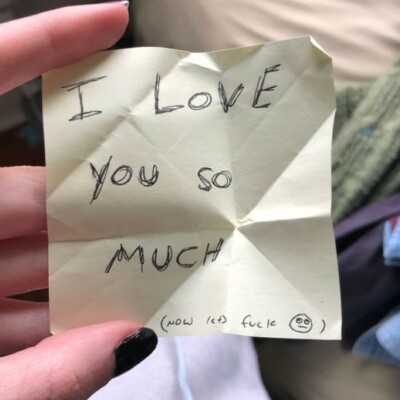 I LOVE
YOU SO
MUCH
(now lets fuck 😐)